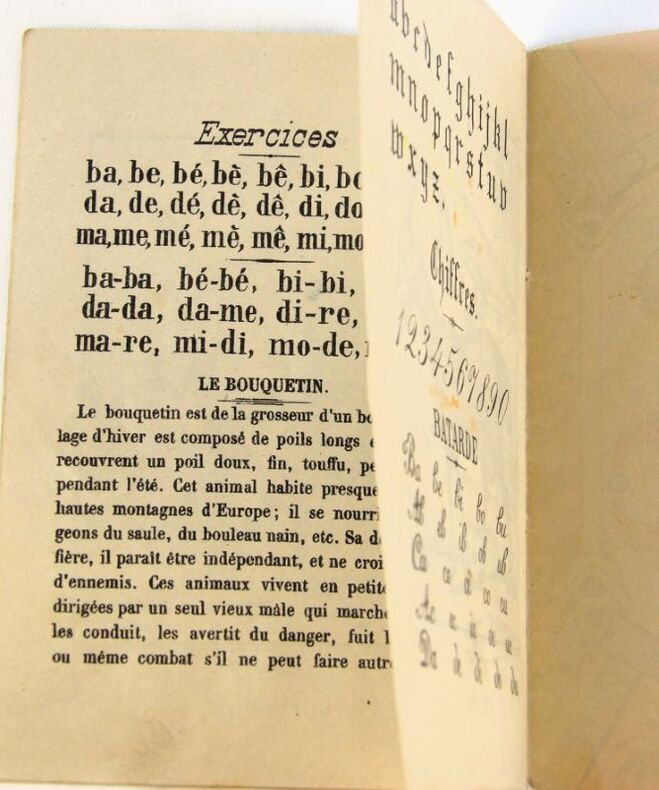 Exercices
ba, be, bé, bè, bê, bi,
da, de, dé, dè, dê, di, do
ma, me, mé, mè, mê, mi, mo
ba-ba, bé-bé, bi-bi,
da-da, da-me, di-re,
ma-re, mi-di, mo-de,
LE BOUQUETIN.
Le bouquetin est de la grosseur d'un
lage d'hiver est composé de poils longs
recouvrent un poil doux, fin, touffu,
pendant l'été. Cet animal habite presque
hautes montagnes d'Europe; il se
geons du saule, du bouleau nain, etc. Sa
fière, il paraît être indépendant, et ne
d'ennemis. Ces animaux vivent en
dirigées par un seul vieux mâle qui
les conduit, les avertit du danger, fuit
ou même combat s'il ne peut faire
abcdefghijkl
mnopqrstuv
wxyz.
Chiffres.
1234567890
BATARDE
Ba be bi bo bu
Ab eb ib ob ub
Ca ce ci co cu
Da de di do du